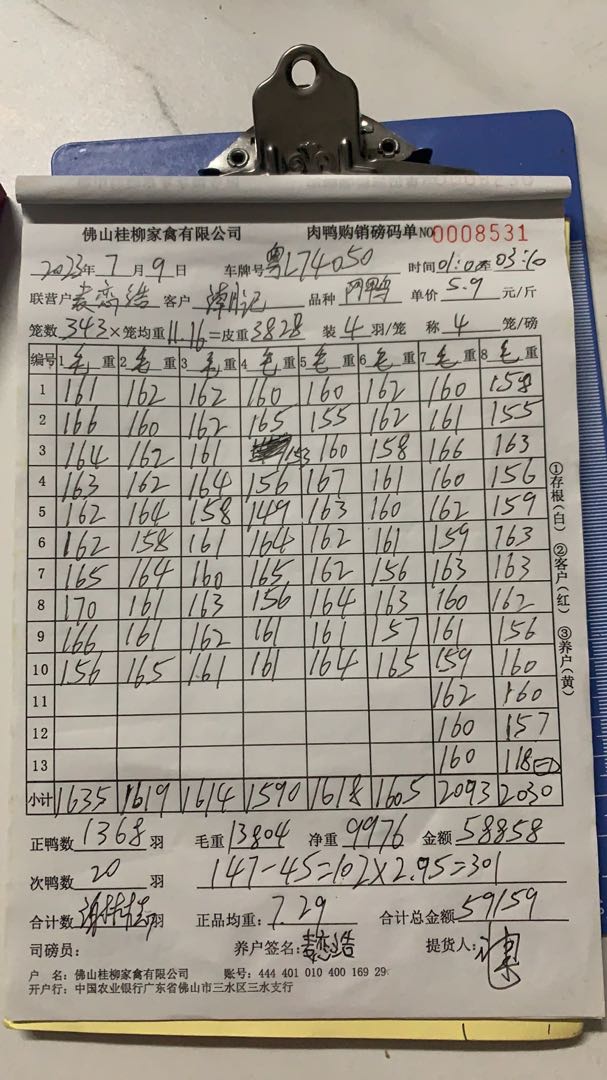 佛山桂柳家禽有限公司 肉鸭购销磅码单 NO 0008531
2023年 7月 9日 车牌号 粤L74050 时间 01:0 03:10
联营户 客户 品种 单价 5.9 元/斤
笼数 343×笼均重 11.16=皮重 3828 装 4 羽/笼 称 4 笼/磅
编号 1 毛 重 2 毛 重 3 毛 重 4 毛 重 5 毛 重 6 毛 重 7 毛 重 8 毛 重
1 161 162 162 160 160 162 160 158
2 166 160 162 165 155 162 161 155
3 164 162 161 153 160 158 166 163
4 163 162 164 156 167 161 160 156
5 162 164 158 149 163 160 162 159
6 162 158 161 164 162 161 159 163
7 165 164 160 165 162 156 163 163
8 170 161 163 156 164 163 160 162
9 166 161 162 161 161 157 161 156
10 156 165 161 161 164 165 159 160
11 162 160
12 160 157
13 160 118
小计 1635 1619 1614 1590 1618 1605 2093 2030
正鸭数 1368 羽 毛重 13804 净重 9976 金额 58858
次鸭数 20 羽 147-45=102×2.95=301
合计数 羽 正品均重: 7.29 合计总金额 59159
司磅员: 养户签名: 提货人:
户 名: 佛山桂柳家禽有限公司 账号: 444 401 010 400 169 29
开户行: 中国农业银行广东省佛山市三水区三水支行
①存根(白) ②客户(红) ③养户(黄)